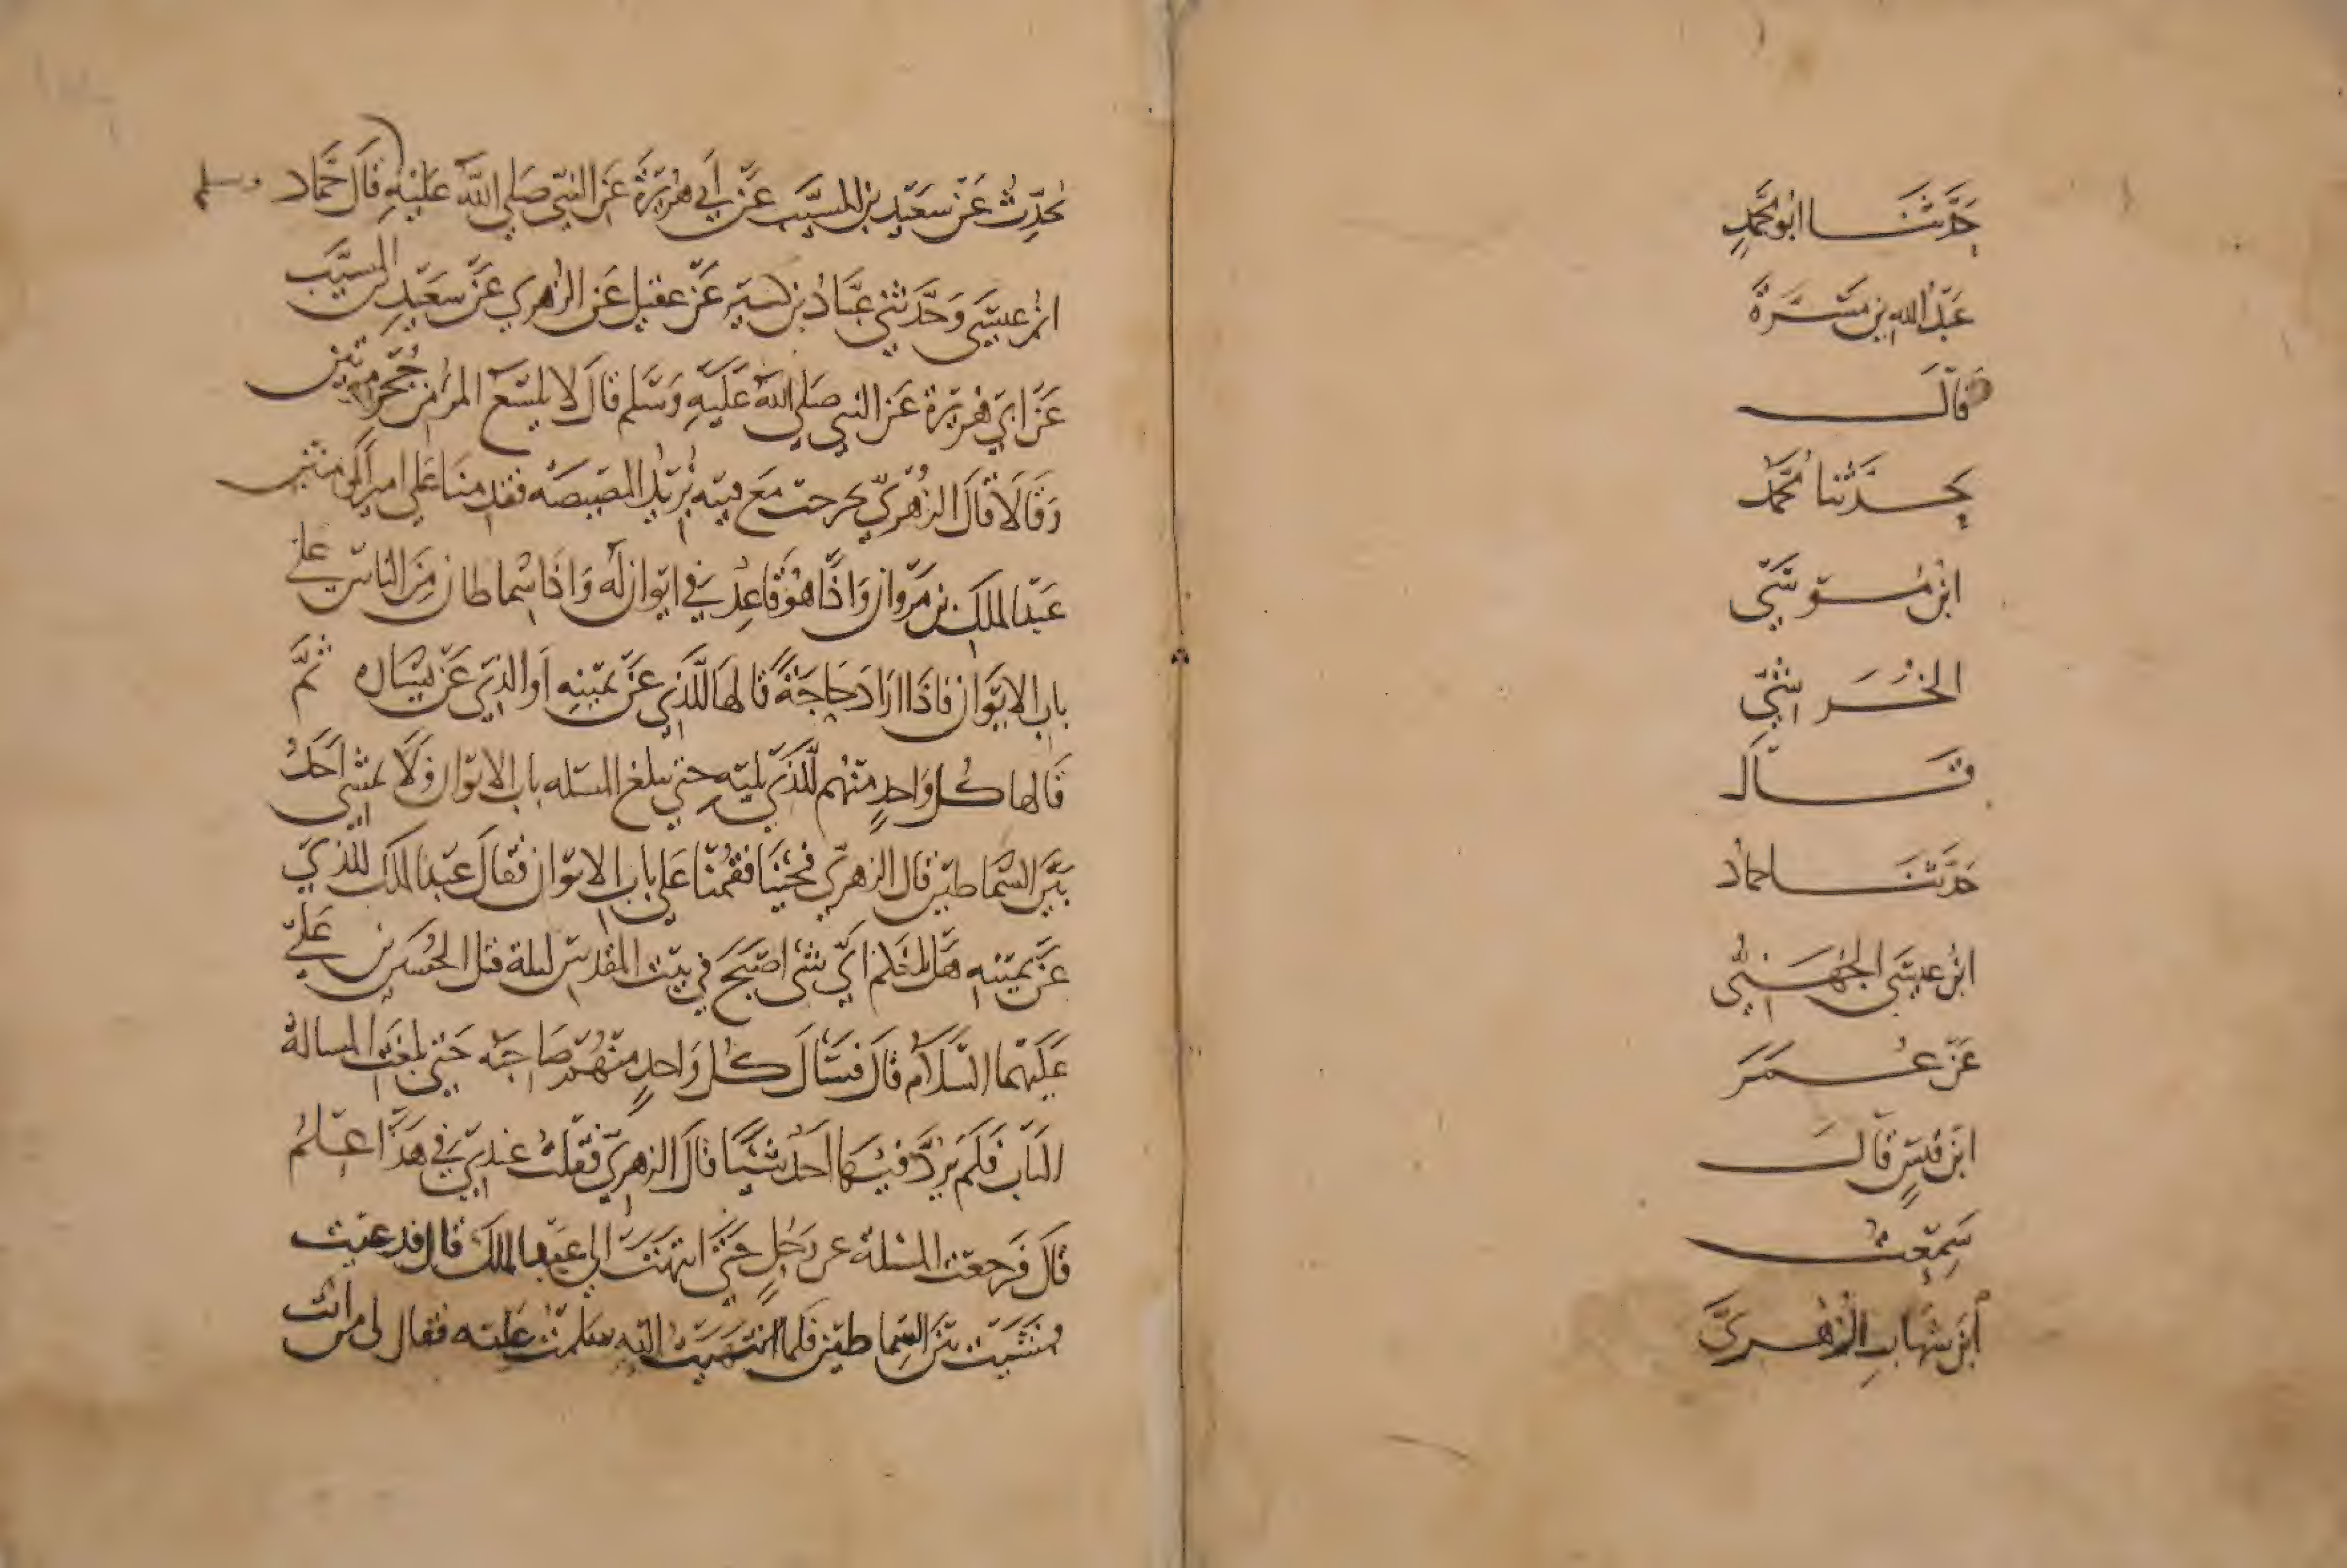 حَدَّثَنَا ابُو مُحَمَّدٍ
عَبْدُ الله بن مَسَرَّةَ
قَالَ
حَدَّثنا مُحَمَّد
ابْن مُوسَى
الخُرَاشِيّ
قَالَ
حَدَّثَنَا حماد
ابْن عِيسَى الجُهَنِيُّ
عَنْ عُمَرَ
ابْن قَيْسٍ قَالَ
سَمِعْتُ
ابْنَ شِهَابِ الزُّهْرِيَّ
يُحَدِّث عَنْ سَعِيْدِ بن المسَيَّب عَنْ أَبي هُرَيْرَةَ عَن النَّبيّ صَلى اللَّه عَلَيْهِ وسلم قَالَ حَمَّاد
ابْن عِيسَى وَحَدَّثَني عَبَّادُ بن كَثِير عَنْ عقيل عَن الزُّهْري عَنْ سَعيْدِ المسيَّب
عَنْ ابي هُرَيْرَة عَن النبي صَلى اللَّه عَلَيْهِ وَسَلم قَالَ لا يلسَع المرءُ من جُحْر مرتين
وَقَالَا قَالَ الزُّهْرِيّ خرجت مَع فتيه نُرِيْدُ المصيصه فقدمنَا عَلى امير المومنين
عَبْد الملك بن مَرْوان وَاذَا هُوَ قَاعِدٌ في ايوان لَه وَاذَا سماطان مِنَ الناس على
باب الايْوَان فاذَا ارَادَ حَاجَةً قالهَا للَّذي عَنْ يمينِهِ أو الذي عَنْ يَسَاره ثمَّ
قَالها كُل وَاحدٍ منهُم للَّذي يليْه حتى يبلغ المسله باب الايوان وَلَا يمشي أَحَدٌ
بَيْنَ السّماطين قال الزهْري فجئنَا فقمنَا عَلى باب الايوان فقَالَ عَبْد الملك للذي
عَنْ يمينه هَل بلغكم ايّ شي اصْبَحَ في بيت المقدس ليلة قتل الحُسَين بن عَليّ
عَلَيهما السَّلَام قالَ فسَالَ كُل وَاحدٍ منهُم صَاحبَه حَتى بلغت المسالة
البَاب فَلَمْ يَرُدَّ فيهَا أَحَد شيْئًا قالَ الزهريّ فقلتُ عندي في هَذَا عِلْمٌ
قالَ فَرجعَت المسْلة عن رَجُلٍ حَتى انتهَت الى عَبْد الملك قَال فدعيت
فمشَيت بَيْنَ السّماطين فَلما انتهَيْتُ اليه سَلمتُ عليه فقال لي من انتَ